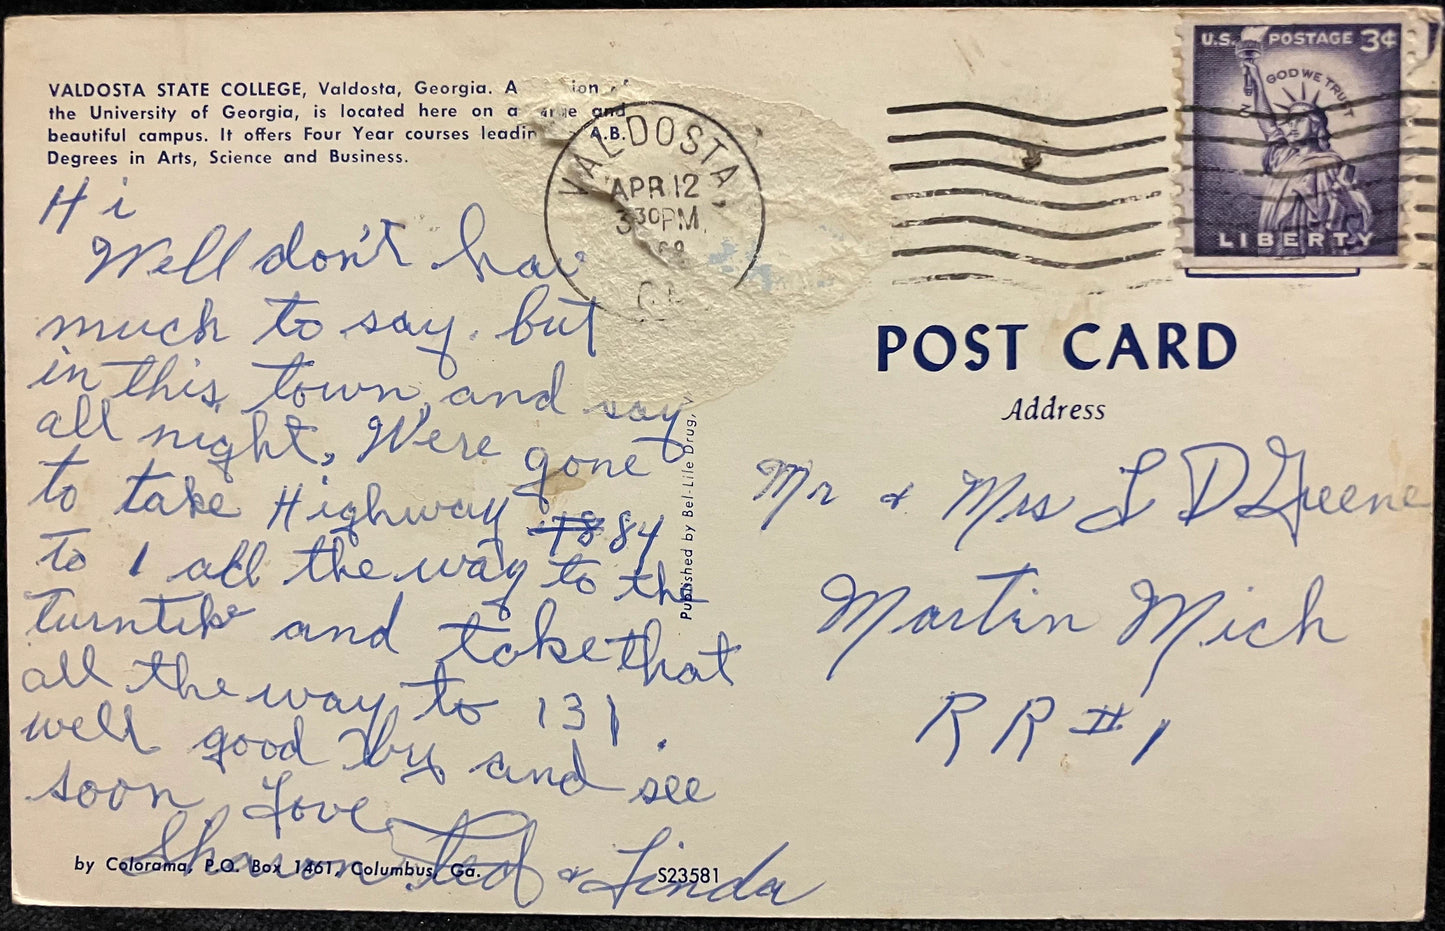 VALDOSTA STATE COLLEGE, Valdosta, Georgia. A
the University of Georgia, is located here on a and
beautiful campus. It offers Four Year courses A.B.
Degrees in Arts, Science and Business.
Hi
Well don't hav
much to say. but
in this town and say
all night, We're gone
to take Highway 84
to 1 all the way to the
turntike and take that
all the way to 131.
well good by and see
soon Love
Sharon Ted & Linda
by Colorama, P.O. Box 1461, Columbus, Ga.
S23581
Published by Bel-Lile Drug, V
VALDOSTA,
APR 12
3 30 PM
GA
U.S. POSTAGE 3¢
IN GOD WE TRUST
LIBERTY
POST CARD
Address
Mr & Mrs L D Greene
Martin Mich
RR #1